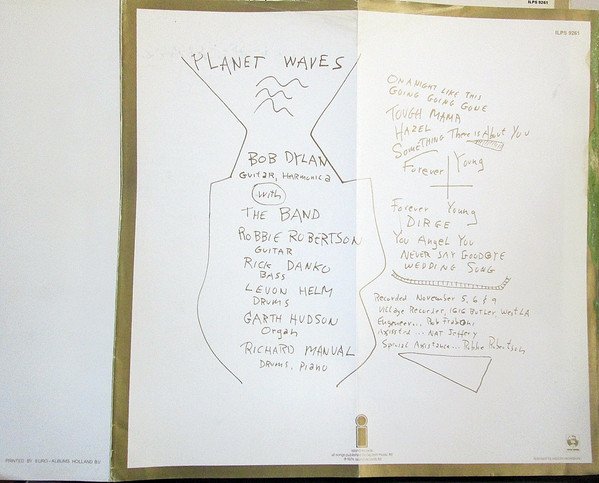 ILPS 9261
ILPS 9261
PLANET WAVES
BOB DYLAN
GUITAR, HARMONICA
with
THE BAND
ROBBIE ROBERTSON
GUITAR
RICK DANKO
BASS
LEVON HELM
DRUMS
GARTH HUDSON
Organ
RICHARD MANUAL
DRUMS, PIANO
ON A NIGHT LIKE THIS
GOING GOING GONE
TOUGH MAMA
HAZEL
SOMETHING There is About You
Forever Young
Forever Young
DIRGE
You Angel You
NEVER SAY GOODBYE
WEDDING SONG
Recorded November 5, 6 & 9
Village Recorder, 1616 Butler West LA
Engineer... Rob
Assistid... NAT Jeffery
Special Assistance... Robbie Robertson
i
PRINTED BY EURO-ALBUMS HOLLAND BV